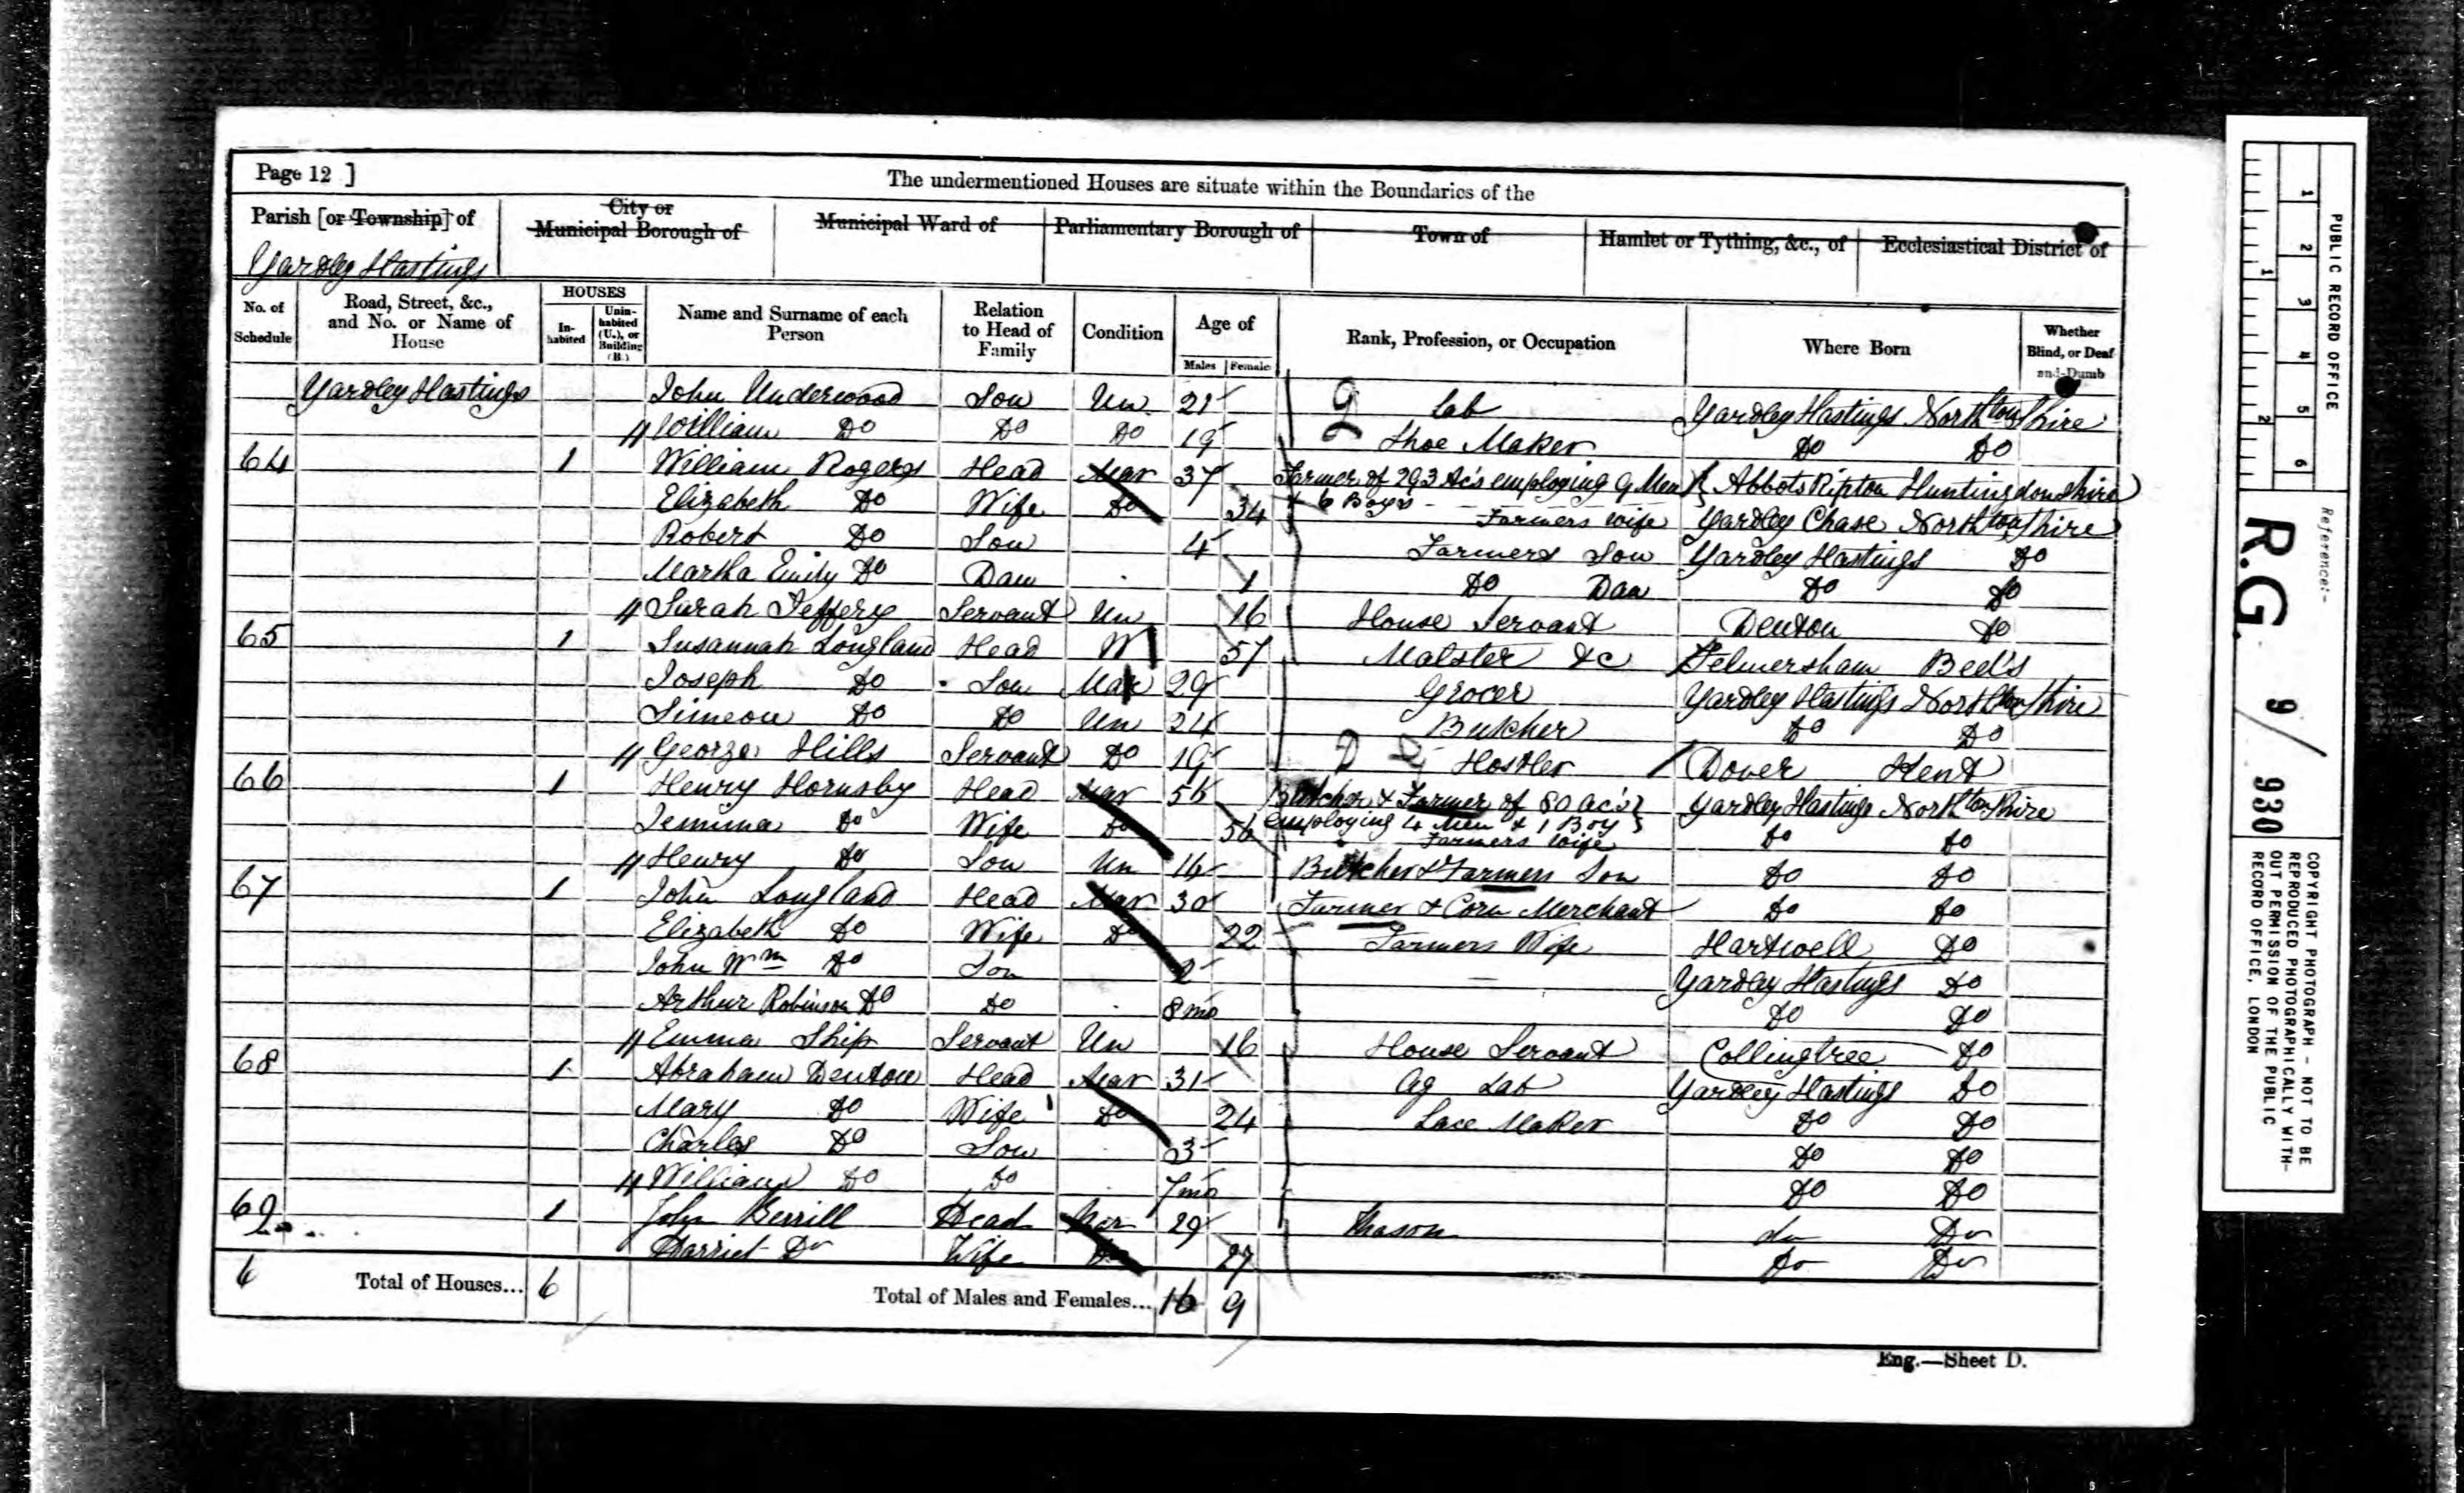 Page 12 ]
The undermentioned Houses are situate within the Boundaries of the
Parish [or Township] of
City or Municipal Borough of
Municipal Ward of
Parliamentary Borough of
Town of
Hamlet or Tything, &c., of
Ecclesiastical District of
Yardley Hastings
No. of Schedule
Road, Street, &c., and No. or Name of House
HOUSES
In-habited
Unin-habited (U.), or Building (B.)
Name and Surname of each Person
Relation to Head of Family
Condition
Age of
Males
Females
Rank, Profession, or Occupation
Where Born
Whether Blind, or Deaf-and-Dumb
Yardley Hastings John Underwood Son Un 21 Lab Yardley Hastings Northtonshire
William Do Do Do 19 Shoe Maker Do Do
64 1 William Rogers Head Mar 37 Farmer of 293 Ac's employing 9 Men Abbots Ripton Huntingdonshire
& 6 Boys
Elizabeth Do Wife Do 34 Farmers Wife Yardley Chase Northtonshire
Robert Do Son 4 Farmers Son Yardley Hastings Do
Martha Emily Do Dau 1 Do Dau Do Do
Sarah Jeffery Servant Un 16 House Servant Denton Do
65 1 Susannah Longland Head W 57 Malster &c Felmersham Bed's
Joseph Do Son Mar 29 Grocer Yardley Hastings Northtonshire
Simeon Do Do Un 24 Butcher Do Do
George Hills Servant Do 19 Hostler Dover Kent
66 1 Henry Hornsby Head Mar 56 Butcher & Farmer of 80 ac's Yardley Hastings Northtonshire
employing 4 Men & 1 Boy
Jemima Do Wife Do 56 Farmers Wife Do Do
Henry Do Son Un 16 Butcher & Farmers Son Do Do
67 1 John Longland Head Mar 30 Farmer & Corn Merchant Do Do
Elizabeth Do Wife Do 22 Farmers Wife Hartwell Do
John Wm Do Son 2 Yardley Hastings Do
Arthur Robinson Do Do 8 mo Do Do
Emma Ship Servant Un 16 House Servant Collingtree Do
68 1 Abraham Denton Head Mar 31 Ag Lab Yardley Hastings Do
Mary Do Wife Do 24 Lace Maker Do Do
Charles Do Son 3 Do Do
William Do Do 7 mo Do Do
69 1 John Berrill Head Mar 29 Mason do Do
Harriet Do Wife Do 27 Do Do
6 Total of Houses... 6 Total of Males and Females... 16 9
Eng.—Sheet D.
PUBLIC RECORD OFFICE
1 2 3 4 5 6
1 2
Reference:-
R.G. 9/930
COPYRIGHT PHOTOGRAPH - NOT TO BE
REPRODUCED PHOTOGRAPHICALLY WITH-
OUT PERMISSION OF THE PUBLIC
RECORD OFFICE, LONDON